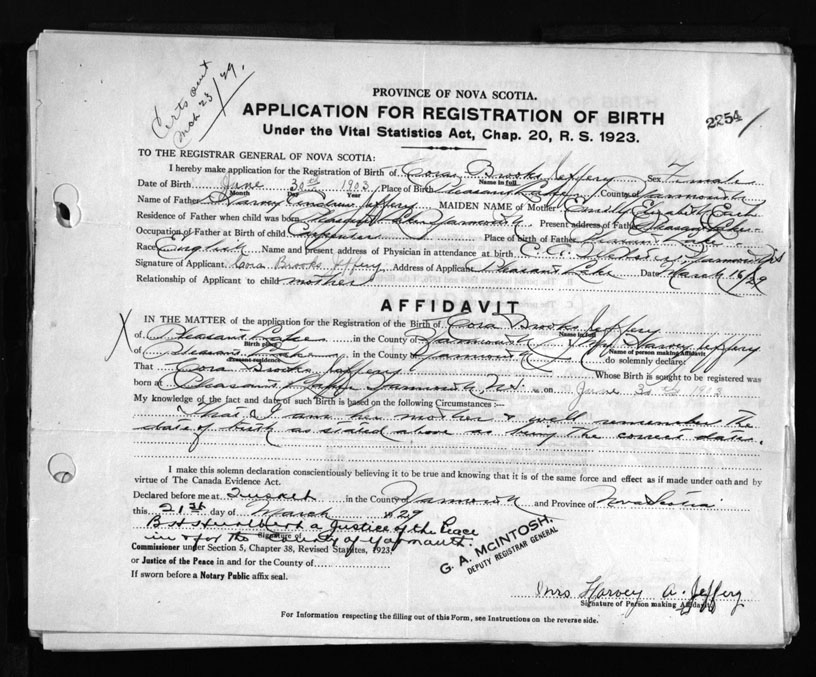 Certs out
Mch 23/29.
PROVINCE OF NOVA SCOTIA.
APPLICATION FOR REGISTRATION OF BIRTH
2254
Under the Vital Statistics Act, Chap. 20, R. S. 1923.
TO THE REGISTRAR GENERAL OF NOVA SCOTIA:
I hereby make application for the Registration of Birth of Cora Brooks Jeffery Sex Female
Name in full
Date of Birth June 30th 1903 Place of Birth Pleasant Lake County of Yarmouth
Month Day Year
Name of Father Harvey Jeffery MAIDEN NAME of Mother Emily Elizabeth
Residence of Father when child was born Pleasant Lake Yarmouth Present address of Father Pleasant Lake
Occupation of Father at Birth of child Carpenter Place of birth of Father Pleasant Lake
Race English Name and present address of Physician in attendance at birth C. A. Webster Yarmouth NS
Signature of Applicant Cora Brooks Jeffery Address of Applicant Pleasant Lake Date March 16/29
Relationship of Applicant to child mother
AFFIDAVIT
IN THE MATTER of the application for the Registration of the Birth of Cora Brooks Jeffery
Name in full
X of Pleasant Lake in the County of Yarmouth I, Mrs Harvey Jeffery
Birth place Name of person making Affidavit
of Pleasant Lake in the County of Yarmouth do solemnly declare:
Present residence
That Cora Brooks Jeffery Whose Birth is sought to be registered was
born at Pleasant Lake Yarmouth N.S. on June 30th 1903
My knowledge of the fact and date of such Birth is based on the following Circumstances:—
That I am her mother & well remember the
date of birth as stated above as being the correct date.
I make this solemn declaration conscientiously believing it to be true and knowing that it is of the same force and effect as if made under oath and by
virtue of The Canada Evidence Act.
Declared before me at Tusket in the County of Yarmouth and Province of Nova Scotia
this 21st day of March 1929
a Justice of the Peace
in & for the County of Yarmouth.
Signature of
Commissioner under Section 5, Chapter 38, Revised Statutes, 1923
or Justice of the Peace in and for the County of
If sworn before a Notary Public affix seal.
G. A. McINTOSH,
DEPUTY REGISTRAR GENERAL
Mrs Harvey A. Jeffery
Signature of Person making Affidavit
For Information respecting the filling out of this Form, see Instructions on the reverse side.